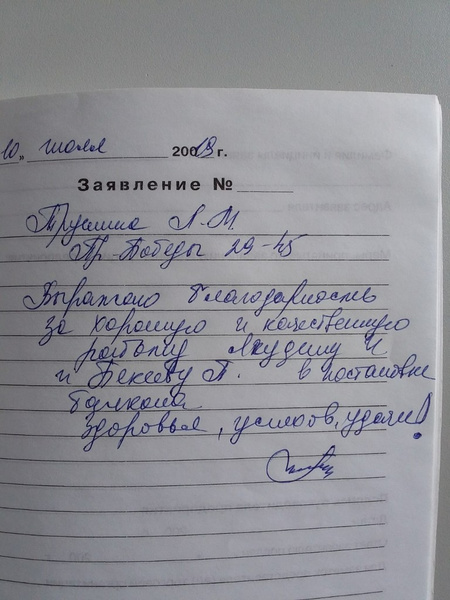 10 " июля 2003 г.
Заявление №
Трушина Л. М.
Пр. Победы 29-45
Выражаю благодарность
за хорошую и качественную
работу Якудину И
и Бекееву П. в постановке
балкона
Здоровья, успехов, удачи!